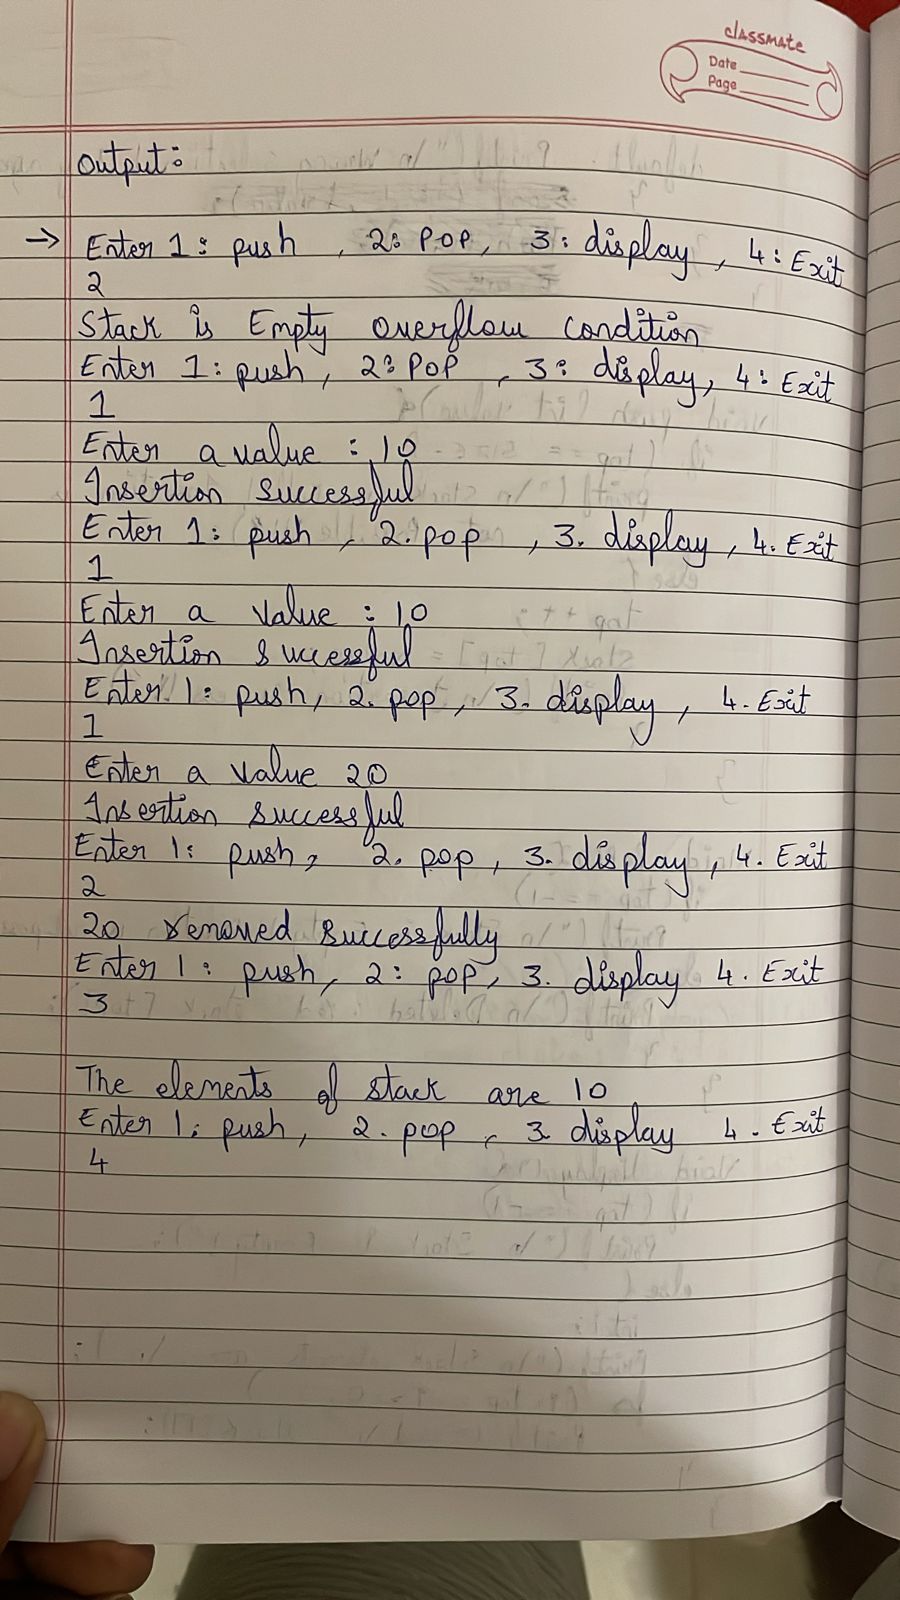 classmate
Date
Page
Output:
→ Enter 1: push , 2: POP, 3: display , 4: Exit
2
Stack is Empty overflow condition
Enter 1: push, 2: POP , 3: display, 4: Exit
1
Enter a value : 10
Insertion successful
Enter 1: push , 2. pop , 3. display , 4. Exit
1
Enter a value : 10
Insertion successful
Enter 1: push, 2. pop , 3. display , 4. Exit
1
Enter a value 20
Insertion successful
Enter 1: push, 2. pop , 3. display , 4. Exit
2
20 removed successfully
Enter 1: push, 2: pop, 3. display 4. Exit
3
The elements of stack are 10
Enter 1: push, 2. pop , 3 display 4. Exit
4